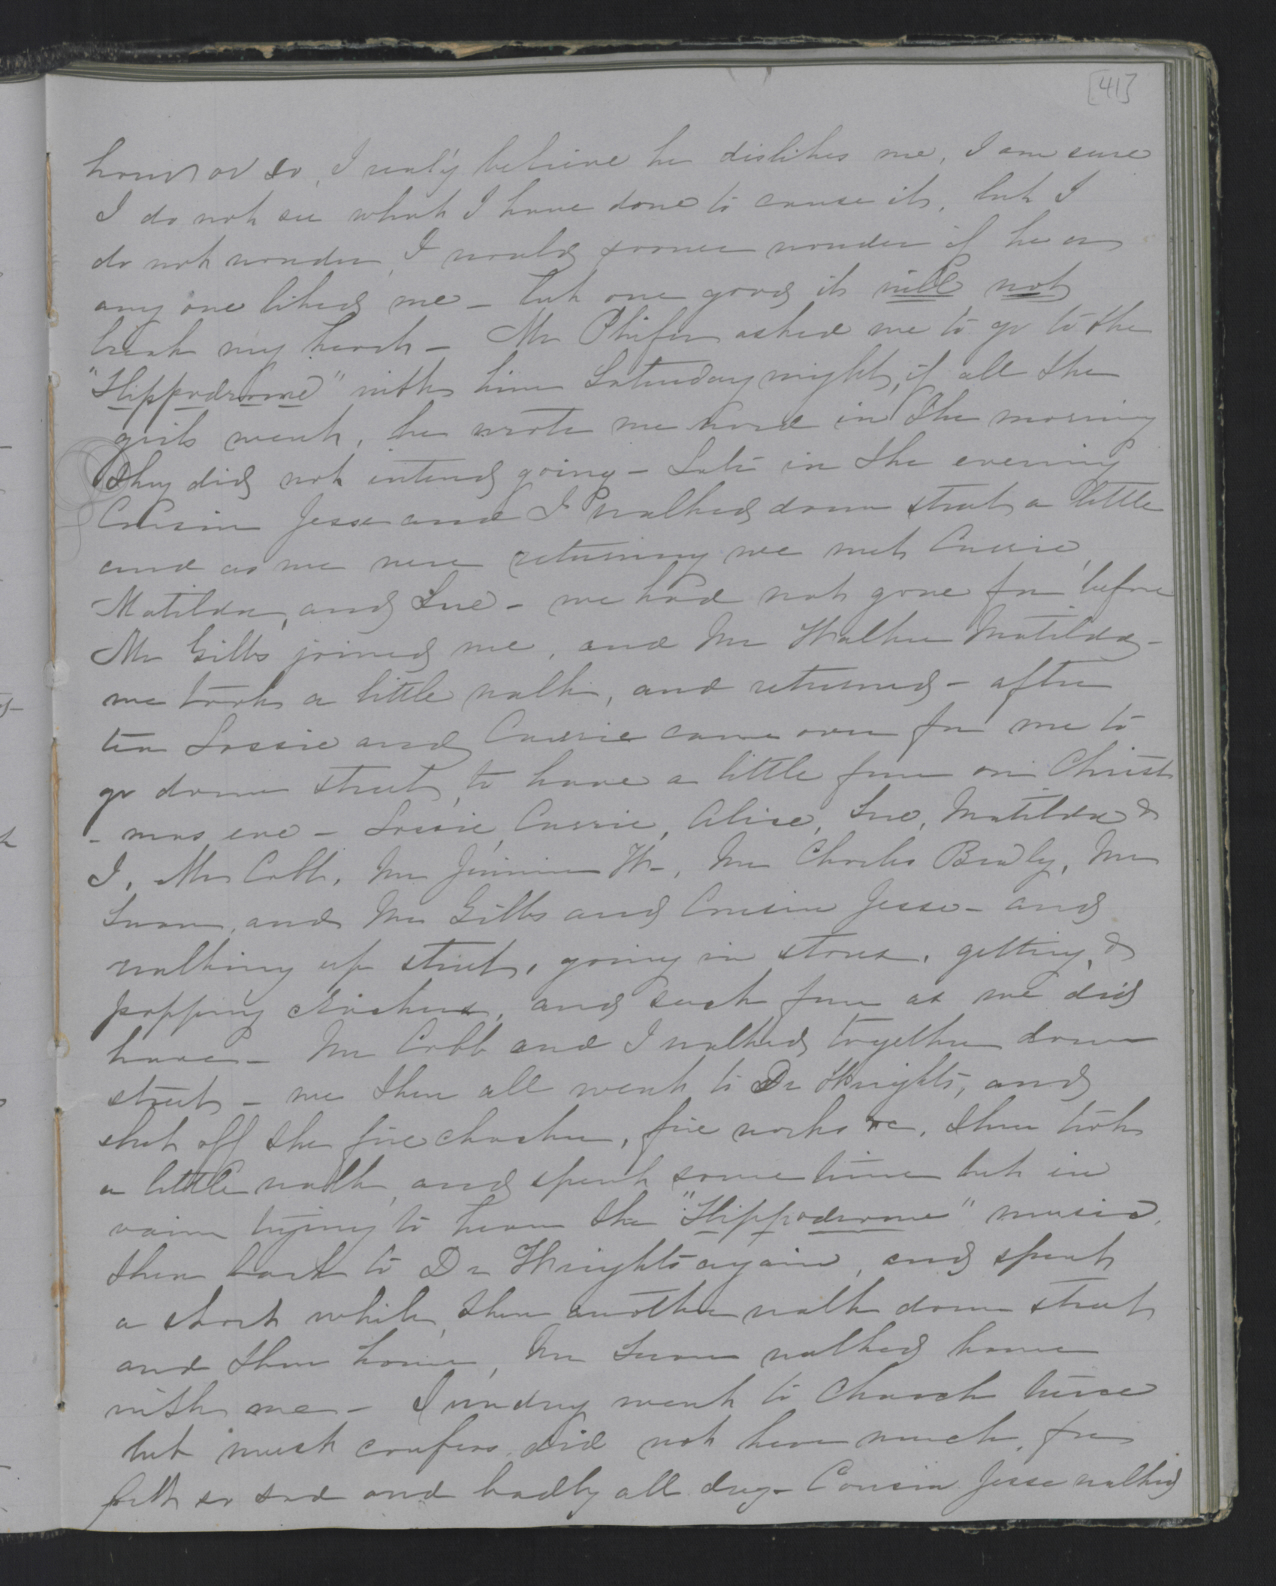 [41]
hour or so, I realy believe he dislikes me, I am sure
I do not see what I have done to cause it, but I
do not wonder, I would sooner wonder if he or
any one liked me - but one good it will not
break my heart - Mr Phifer asked me to go to the
"Hippodrome" with him Saturday night, if all the
girls went, he wrote me word in the morning
they did not intend going - Late in the evening
Cousin Jesse and I walked down street a little
and as we were returning we met Cassie,
Matilda, and Sue - we had not gone far before
Mr Gibbs joined me, and Mr Walker Matilda -
we took a little walk, and returned - after
tea Lossie and Cassie came over for me to
go down street, to have a little fun on Christ
- mas eve - Lossie, Cassie, Alice, Sue, Matilda &
I, Mr Cobb, Mr Jimmie W-, Mr Charles Bealy, Mr
and Mr Gibbs and Cousin Jesse - and
walking up street, going in stores, getting, &
popping crackers, and such fun as we did
have - Mr Cobb and I walked together down
street - we then all went to Dr Wrights, and
shot off the fire cracker, fire works &c, then took
a little walk, and spent some time but in
vain trying to hear the "Hippodrome" music,
then back to Dr Wrights again, and spent
a short while, then another walk down street
and then home, Mr walked home
with me - Sunday went to Church twice
but must confess did not hear much, for
felt so sad and badly all day - Cousin Jesse walked